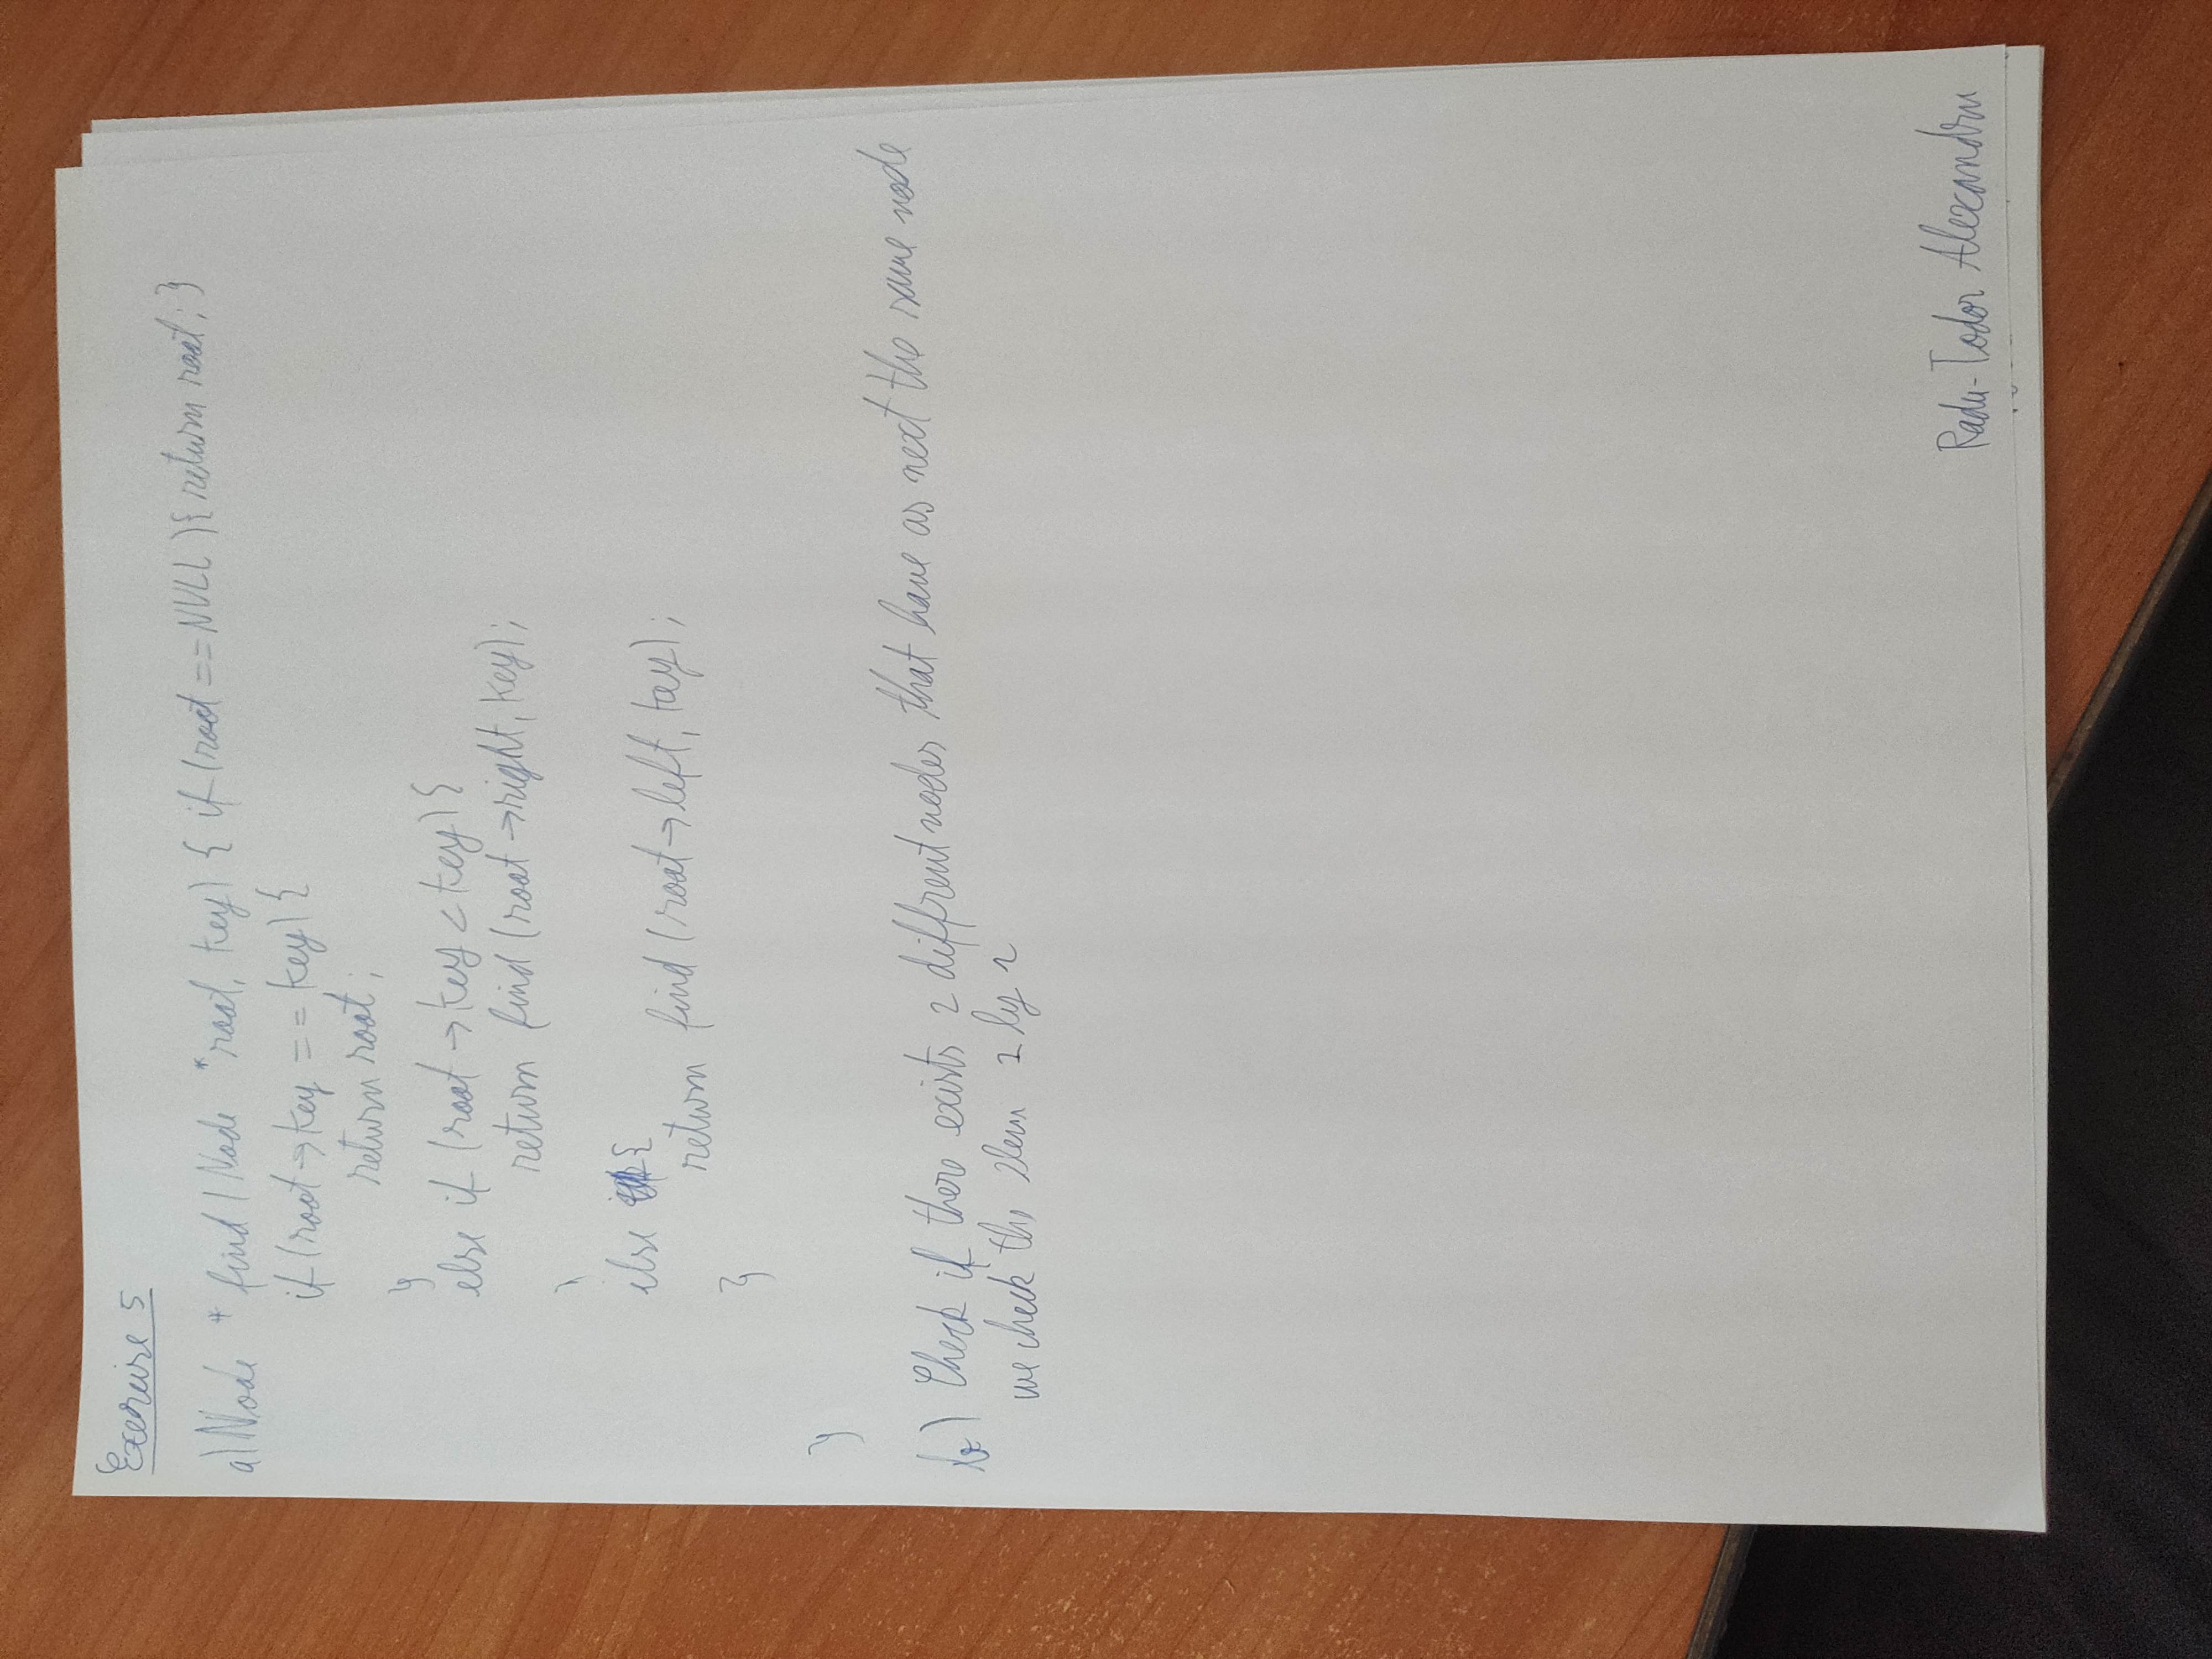 Exercise 5
a) Node * find (Node *root, key) { if (root == NULL) { return root; }
if (root → key == key) {
return root;
}
else if (root → key < key) {
return find (root → right, key);
}
else {
return find (root → left, key);
}
}
b) Check if there exists 2 diffrent nodes that have as next the same node
we check the 2 by 2
Radu-Todor Alexandru